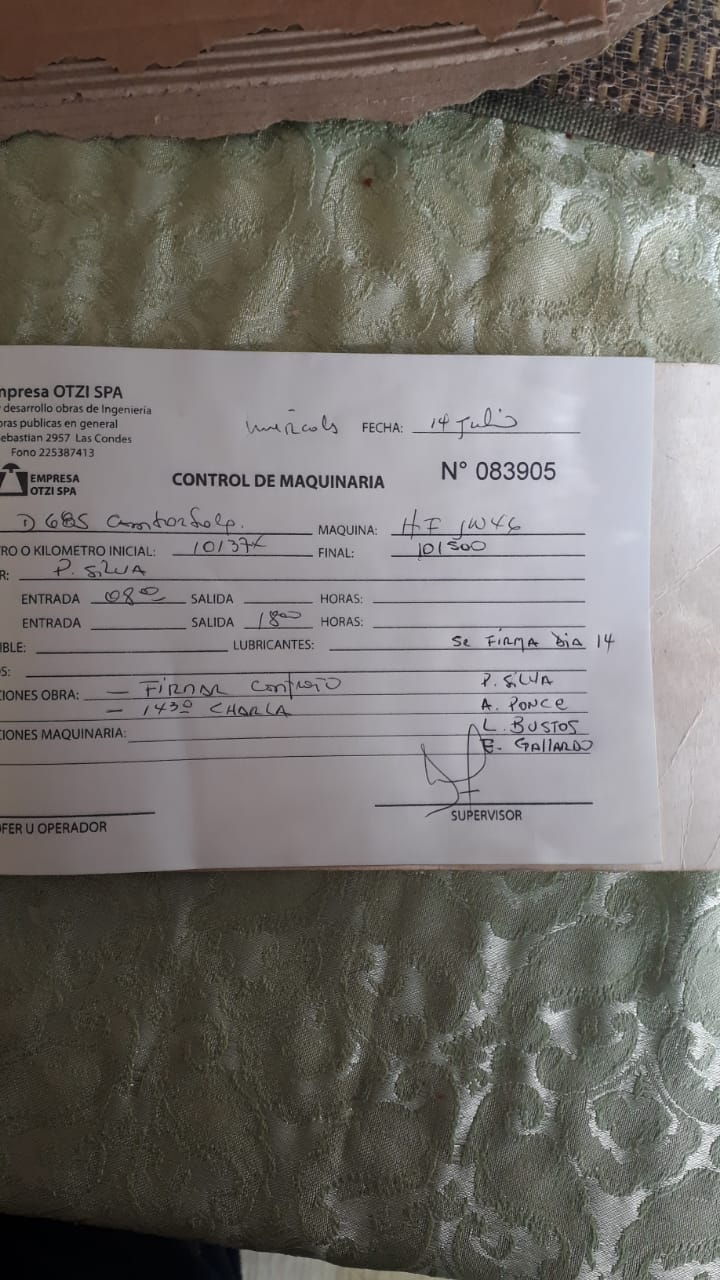 mpresa OTZI SPA
desarrollo obras de Ingenieria
oras publicas en general
ebastian 2957 Las Condes
Fono 225387413
FECHA: 14 Julio
EMPRESA
OTZI SPA
CONTROL DE MAQUINARIA
N° 083905
D 685 MAQUINA: HF JW46
RO O KILOMETRO INICIAL: FINAL: 101500
R: P. SILVA
ENTRADA 08 00 SALIDA HORAS:
ENTRADA SALIDA 18 00 HORAS:
IBLE: LUBRICANTES: Se FIRMA DIA 14
S:
IONES OBRA: — FIRMAR Contrato P. SILVA
— 143º CHARLA A. PONCE
L. BUSTOS
IONES MAQUINARIA: E. GALLARDO
OFER U OPERADOR
SUPERVISOR